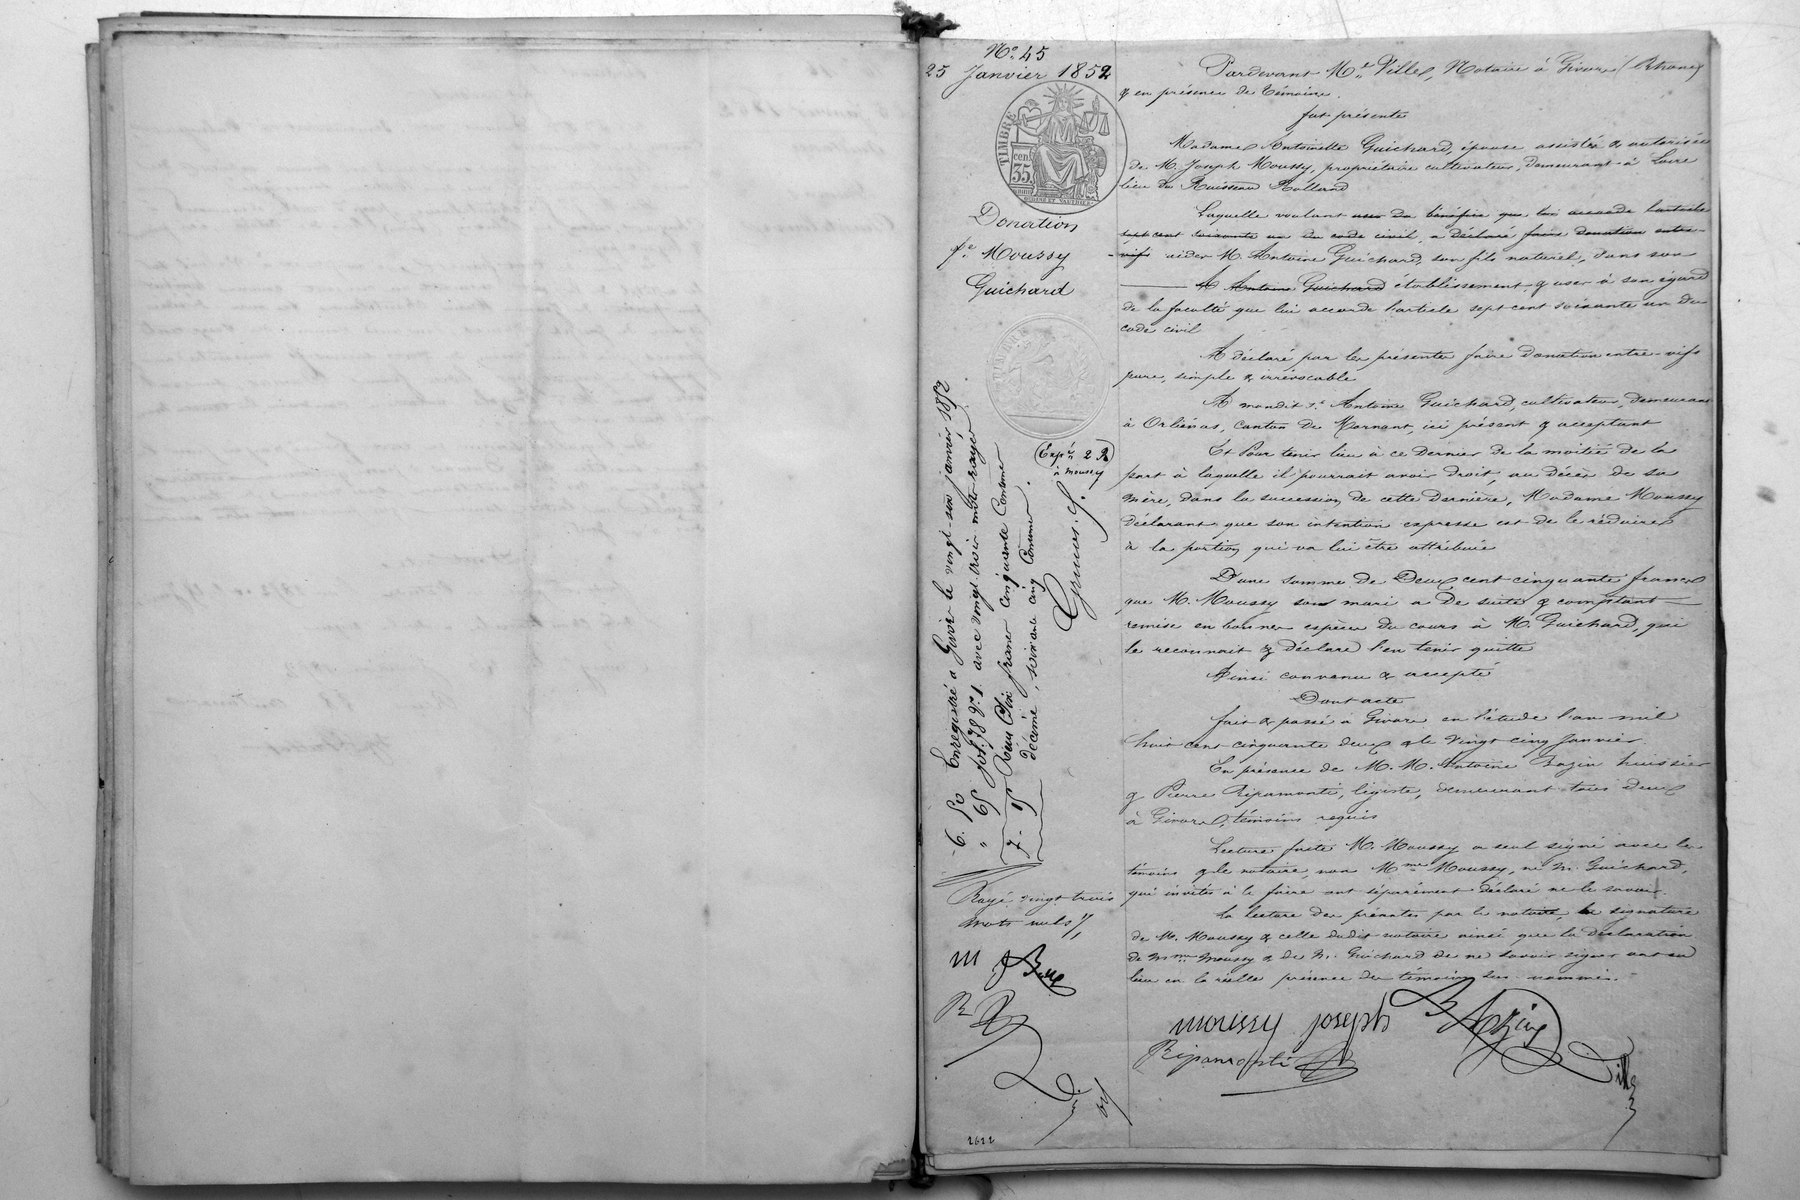 No. 45
25 Janvier 1852
TIMBRE
35 cen.
Donation
fe. Moussy
Guichard
(Expn. 2 R
à Moussy)
Enregistré à Givors le vingt-six janvier 1852
fol. 78 Vo. 1. avec vingt trois mots rayés
Reçu six francs cinquante centimes
décime, soixante cinq centimes.
6. 50
" 65
7. 15
Rayé vingt trois
mots nuls
m
R
2622
Pardevant Me. Ville, Notaire à Givors (Rhône)
& en présence de témoins.
fut présente
Madame Antoinette Guichard, épouse assistée & autorisée
de M. Joseph Moussy, propriétaire cultivateur, demeurant à Loire
lieu du Ruisseau Rolland
Laquelle voulant user du bénéfice que lui accorde l'article
sept cent soixante un du code civil, a déclaré faire donation entre-
-vifs aider M. Antoine Guichard, son fils naturel, dans son
A Antoine Guichard établissement, & user à son égard
de la faculté que lui accorde l'article sept cent soixante un du
code civil
A déclaré par les présentes faire donation entre-vifs
pure, simple & irrévocable
A mondit sr. Antoine Guichard, cultivateur, demeurant
à Orliénas, canton de Mornant, ici présent & acceptant
Et Pour tenir lieu à ce dernier de la moitié de la
part à laquelle il pourrait avoir droit, au décès de sa
mère, dans la succession de cette dernière, Madame Moussy
déclarant que son intention expresse est de le réduire
à la portion qui va lui être attribuée
D'une somme de Deux cent cinquante francs
que M. Moussy son mari a de suite & comptant
remise en bonnes espèces du cours à M. Guichard, qui
le reconnait & déclare l'en tenir quitte
Ainsi convenu & accepté
Dont acte
fait & passé à Givors en l'étude l'an mil
huit cent cinquante deux & le vingt cinq Janvier
En présence de M.M. Antoine Bazin huissier
& Pierre Ripamonti, légiste, demeurant tous deux
à Givors, témoins requis
Lecture faite M. Moussy a seul signé avec les
témoins & le notaire, non Mme Moussy, ni M. Guichard,
qui invités à le faire ont séparément déclaré ne le savoir.
La lecture des présentes par le notaire, la signature
de M. Moussy & celle dudit notaire ainsi que la déclaration
de Mme Moussy & de M. Guichard de ne savoir signer ont eu
lieu en la réelle présence des témoins sus-nommés.
moussy joseph Bazin
Ripamonti Ville